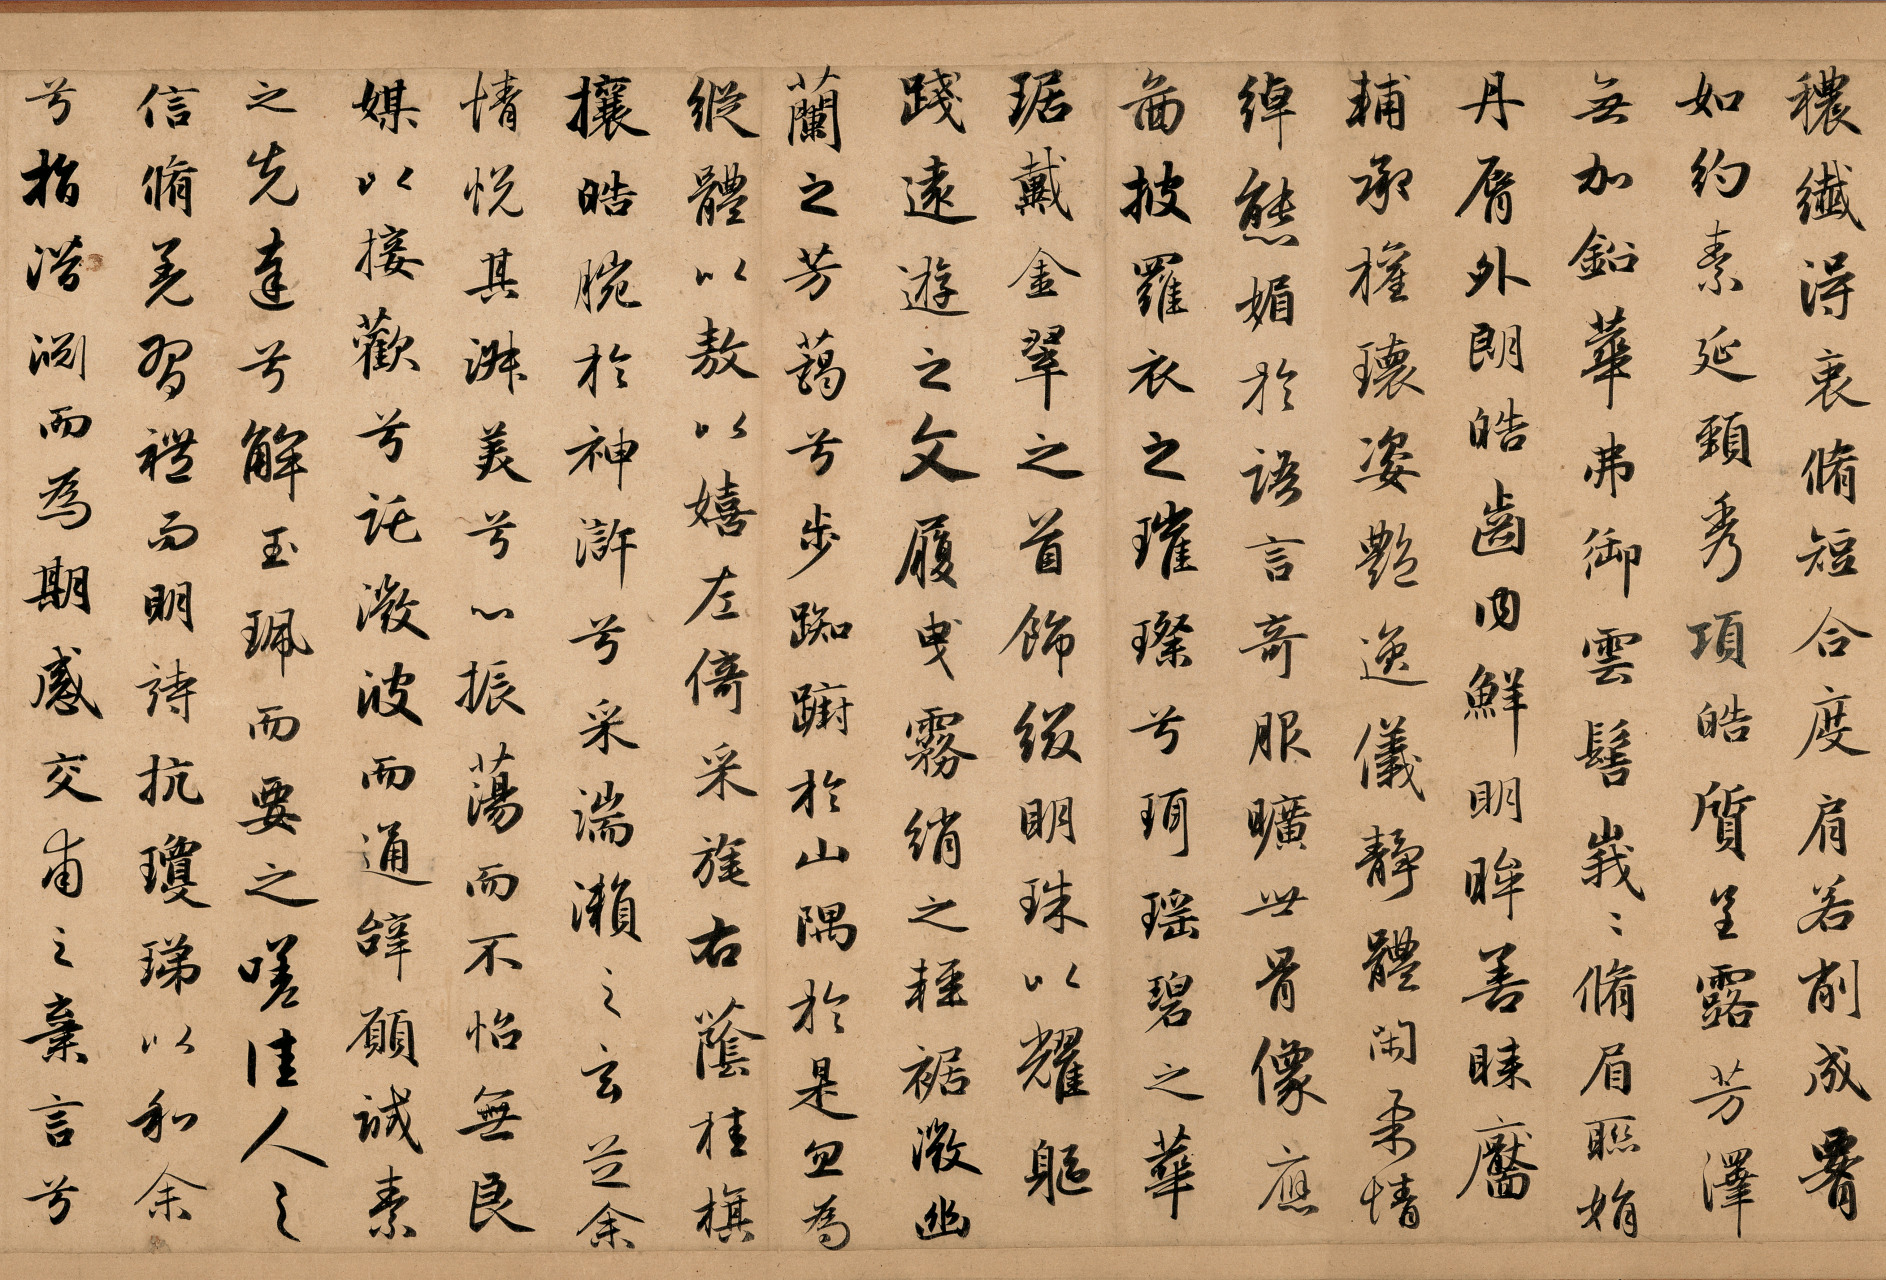 穠纖得衷脩短合度肩若削成署
如約素延頸秀項皓質呈露芳澤
無加鉛華弗御雲髻峩〻脩眉聯娟
丹脣外朗皓齒内鮮明眸善睞靨
輔承權瓌姿艷逸儀靜體閑柔情
綽態媚於語言奇服曠世骨像應
啚披羅衣之璀璨兮珥瑶碧之華
琚戴金翠之首飾綴明珠以耀軀
踐遠遊之文履曳霧綃之輕裾微幽
蘭之芳藹兮步踟蹰於山隅於是忽為
縱體以敖以嬉左倚采旄右蔭桂旗
攘皓腕於神滸兮采湍瀬之玄芝余
情悅其淋美兮心振蕩而不怡無良
媒以接歡兮託微波而通辭願誠素
之先達兮解玉珮而要之嗟佳人之
信脩羌習禮而明詩抗瓊珶以和余
兮指潛渊而為期感交甫之棄言兮